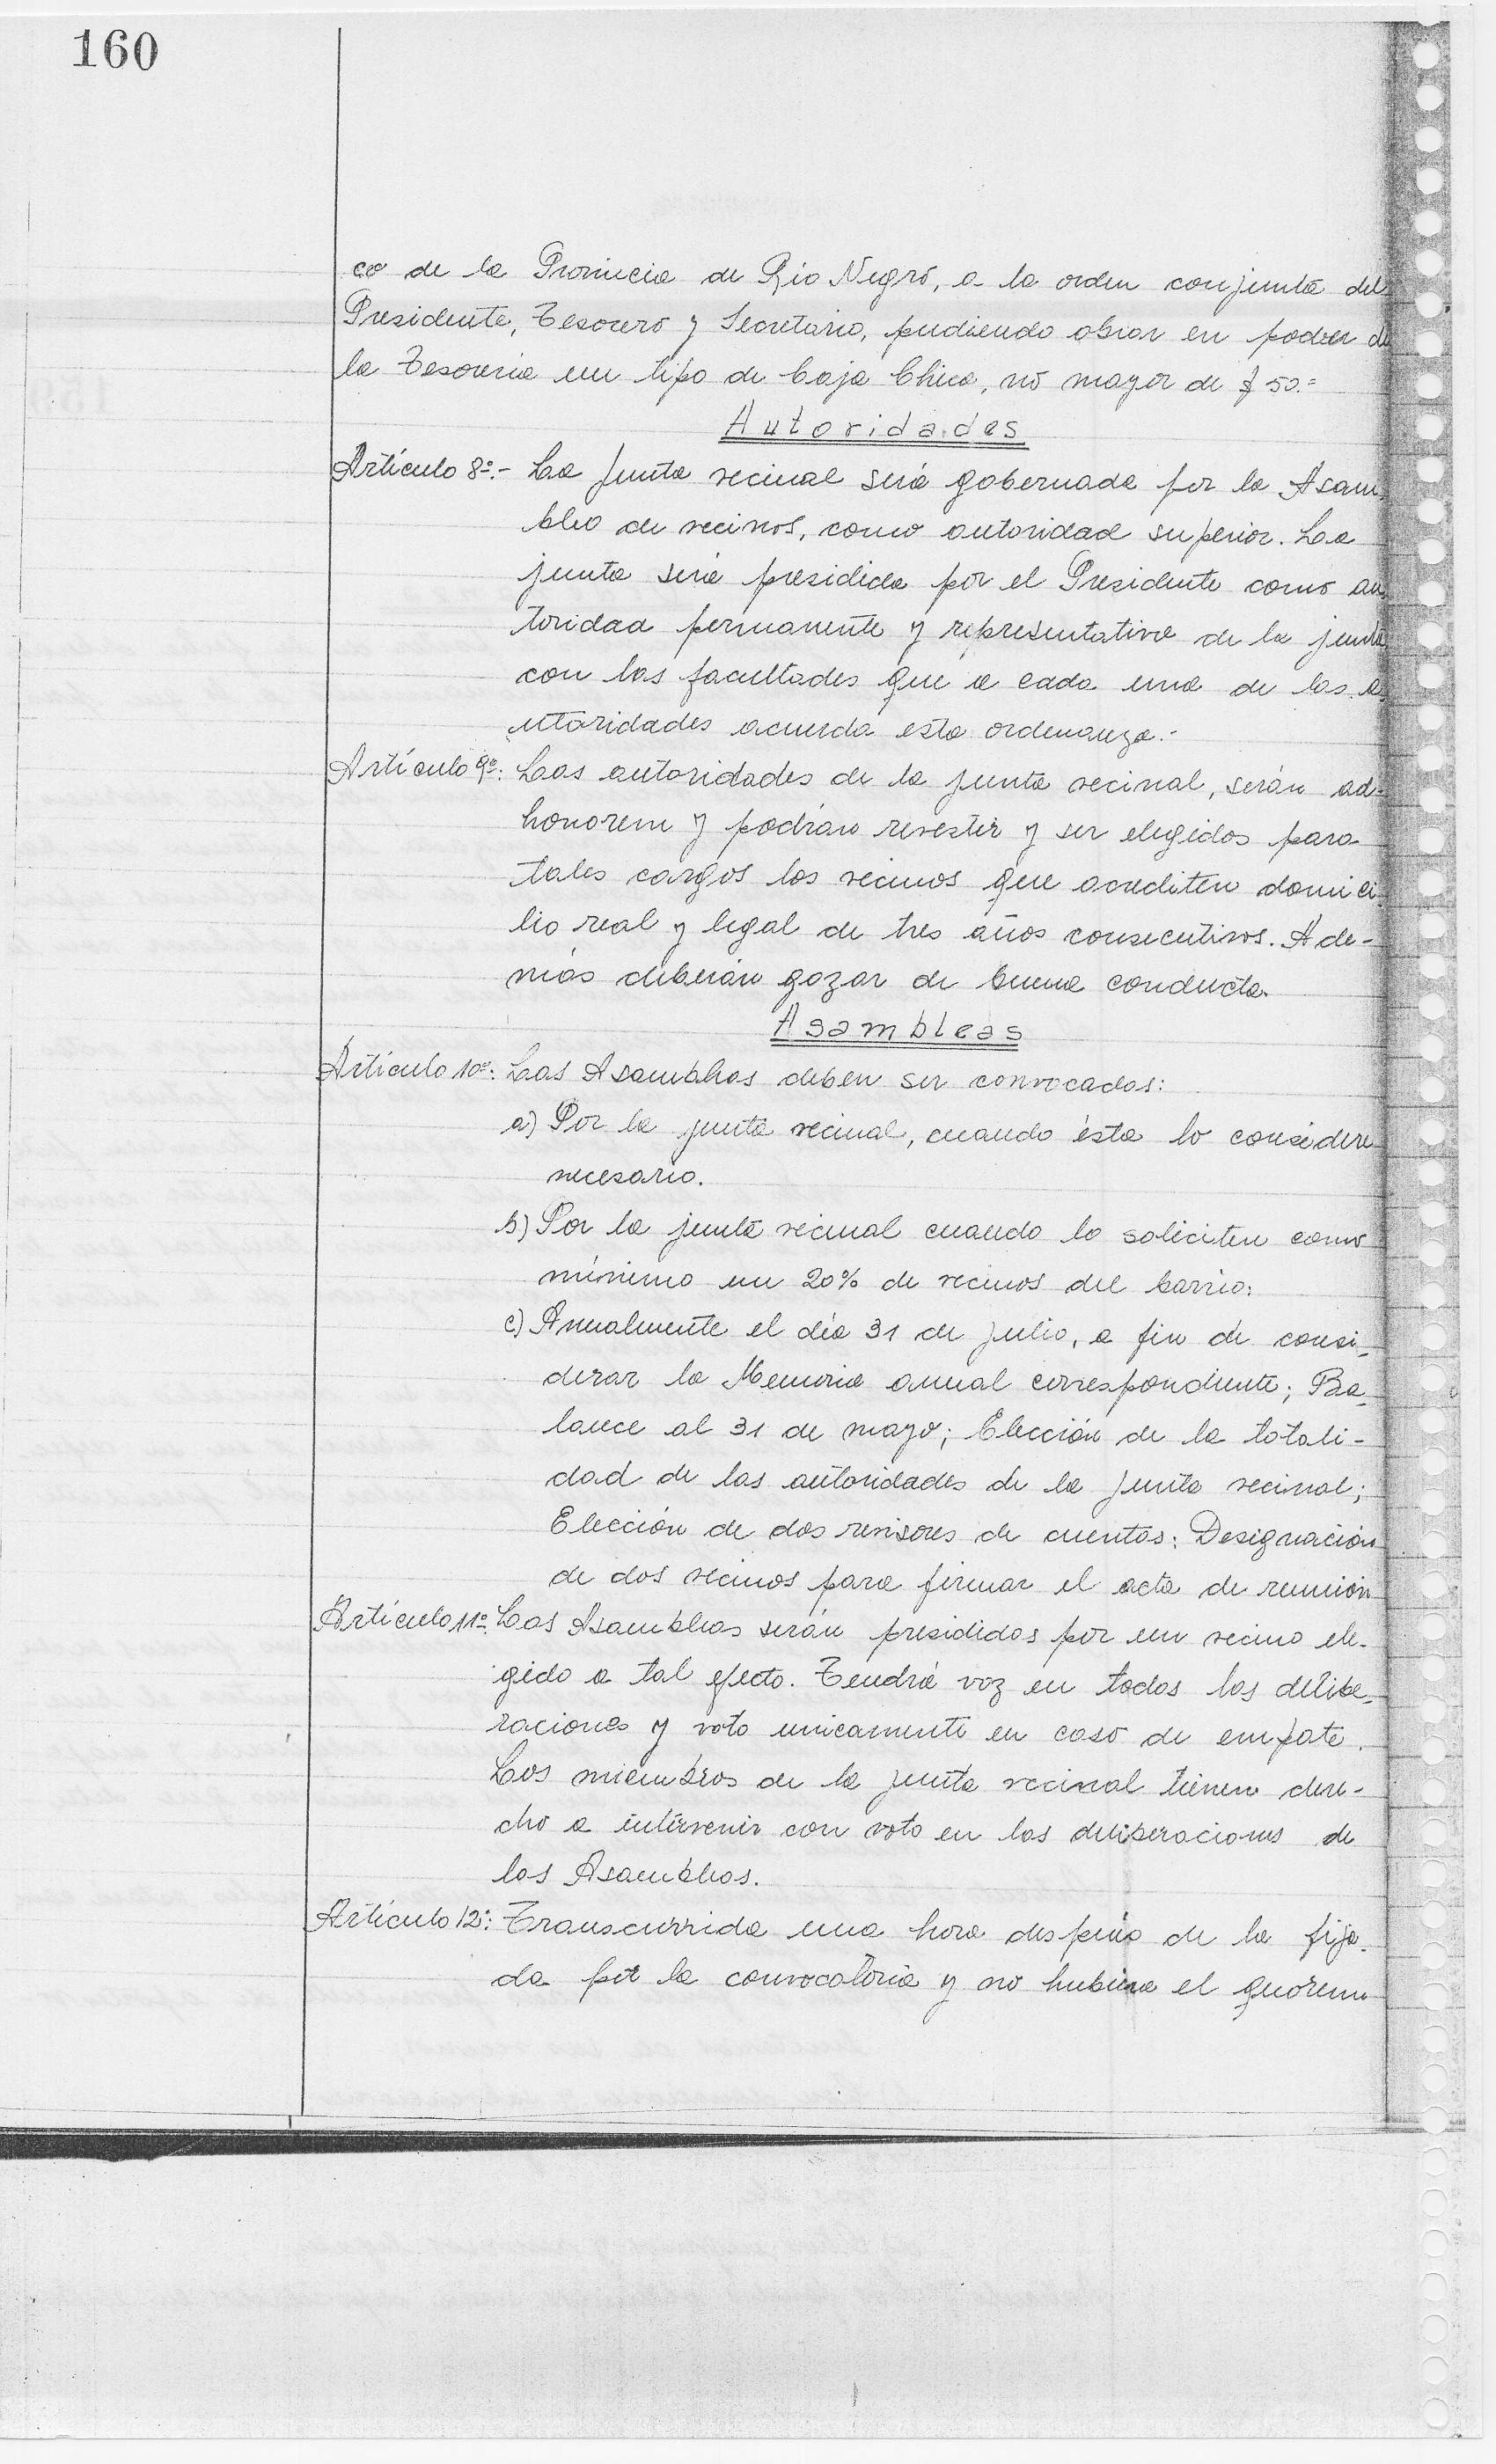 160
co de la Provincia de Rio Negro, a la orden conjunta del
Presidente, Tesorero y Secretario, pudiendo obrar en poder de
la Tesoreria un tipo de Caja Chica, no mayor de $ 50.=
Autoridades
Artículo 8º.- La Junta vecinal será gobernada por la Asam-
blea de vecinos, como autoridad superior. La
junta será presidida por el Presidente como au-
toridad permanente y representativa de la junta
con las facultades que a cada una de las a-
utoridades acuerda esta ordenanza.-
Artículo 9º: Las autoridades de la junta vecinal, serán ad-
honorem y podrán revestir y ser elegidos para
tales cargos los vecinos que acrediten domici-
lio real y legal de tres años consecutivos. Ade-
más deberán gozar de buena conducta.
Asambleas
Artículo 10º: Las Asambleas deben ser convocadas:
a) Por la junta vecinal, cuando ésta lo considere
necesario.
b) Por la junta vecinal cuando lo soliciten como
mínimo un 20% de vecinos del barrio:
c) Anualmente el día 31 de julio, a fin de consi-
derar la Memoria anual correspondiente; Ba-
lance al 31 de mayo; Elección de la totali-
dad de las autoridades de la junta vecinal;
Elección de dos revisores de cuentas: Designación
de dos vecinos para firmar el acta de reunión
Artículo 11º: Las Asambleas serán presididas por un vecino ele-
gido a tal efecto. Tendrá voz en todas las delibe-
raciones y voto unicamente en caso de empate.
Los miembros de la junta vecinal tienen dere-
cho a intervenir con voto en las deliberaciones de
las Asambleas.
Artículo 12º: Transcurrida una hora después de la fija-
da por la convocatoria y no hubiera el quorum